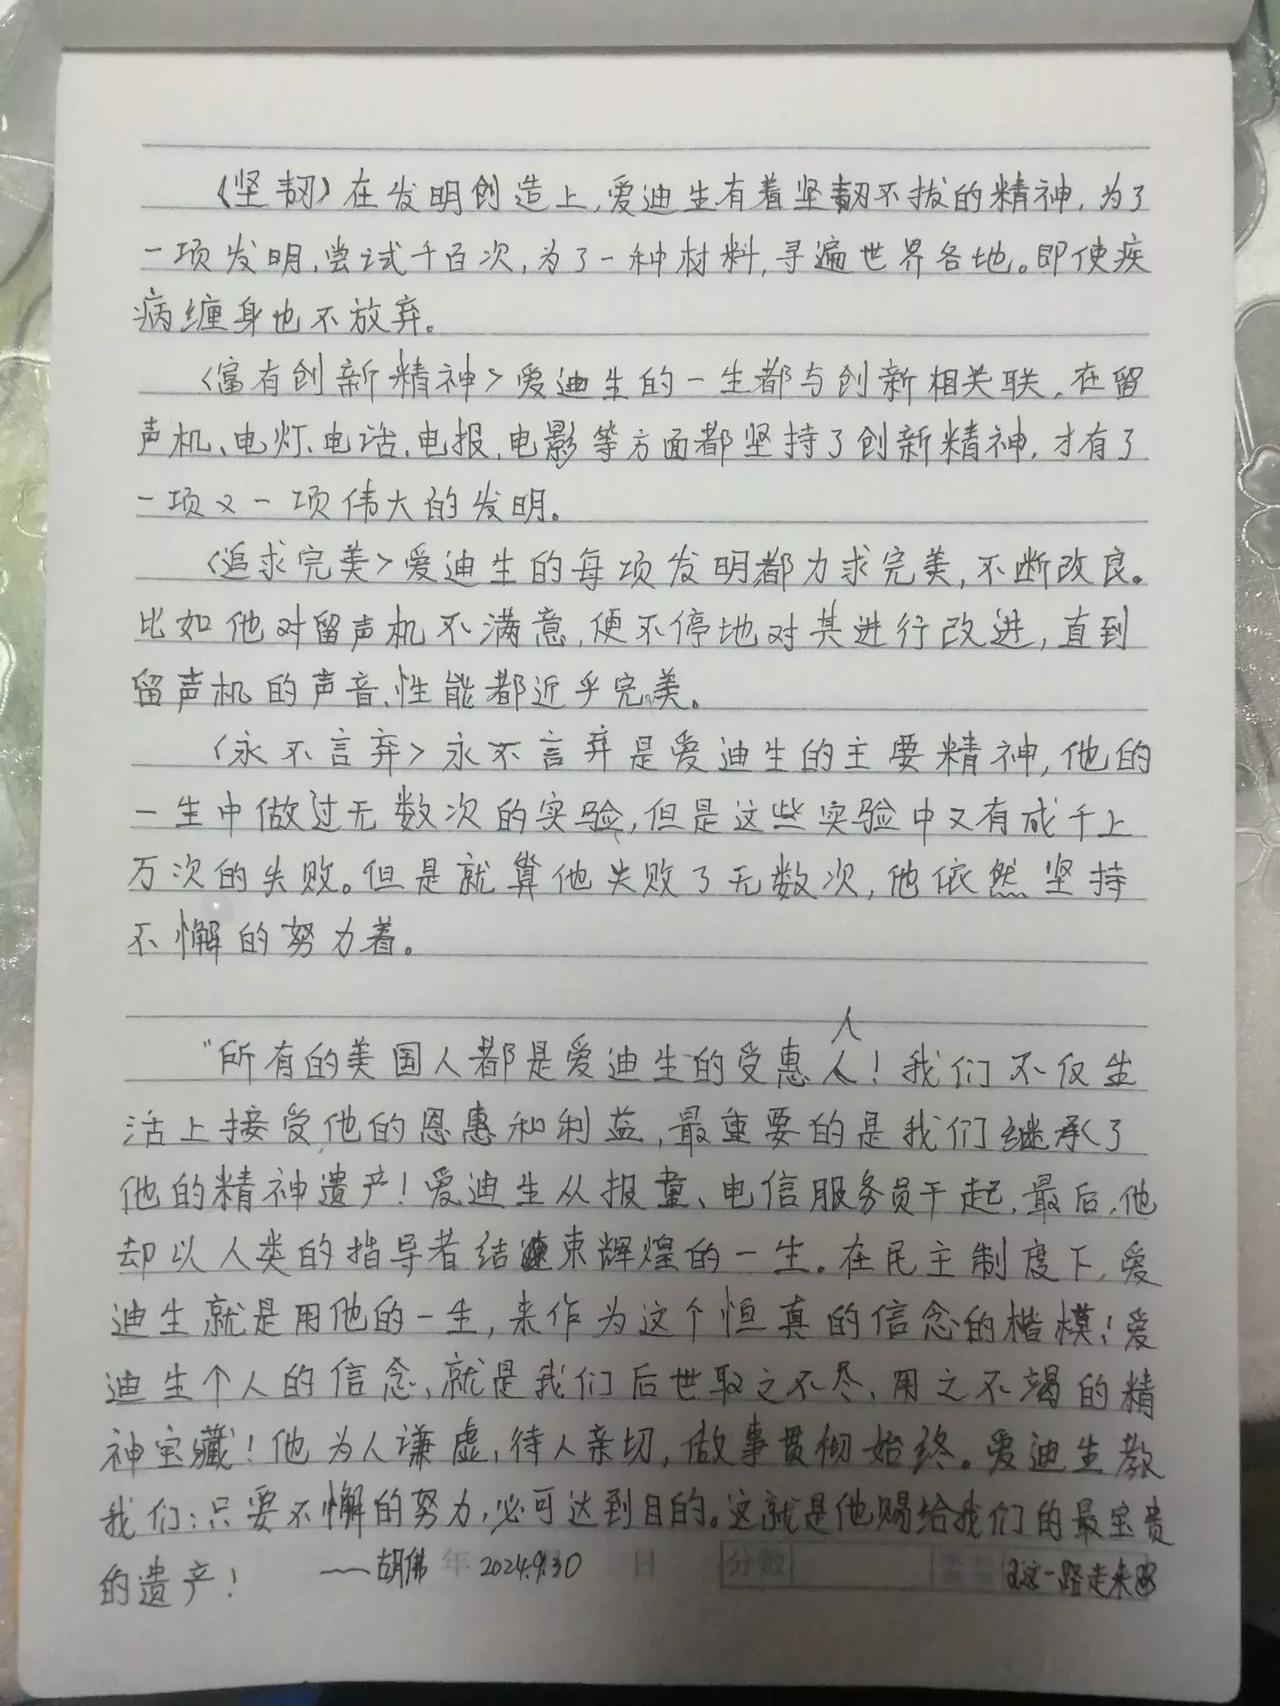 《坚韧》在发明创造上,爱迪生有着坚韧不拔的精神,为了
一项发明,尝试千百次,为了一种材料,寻遍世界各地。即使疾
病缠身也不放弃。
<富有创新精神>爱迪生的一生都与创新相关联,在留
声机、电灯、电话、电报、电影等方面都坚持了创新精神,才有了
一项又一项伟大的发明。
<追求完美>爱迪生的每项发明都力求完美,不断改良。
比如他对留声机不满意,便不停地对其进行改进,直到
留声机的声音、性能都近乎完美。
<永不言弃>永不言弃是爱迪生的主要精神,他的
一生中做过无数次的实验,但是这些实验中又有成千上
万次的失败。但是就算他失败了无数次,他依然坚持
不懈的努力着。
"所有的美国人都是爱迪生的受惠人!我们不仅生
活上接受他的恩惠和利益,最重要的是我们继承了
他的精神遗产!爱迪生从报童、电信服务员干起,最后,他
却以人类的指导者结束辉煌的一生。在民主制度下,爱
迪生就是用他的一生,来作为这个恒真的信念的楷模!爱
迪生个人的信念,就是我们后世取之不尽、用之不竭的精
神宝藏!他为人谦虚,待人亲切,做事贯彻始终。爱迪生教
我们:只要不懈的努力,必可达到目的。这就是他赐给我们的最宝贵
的遗产! ——胡佛 年 2024.9.30 日 分数 这一路走来